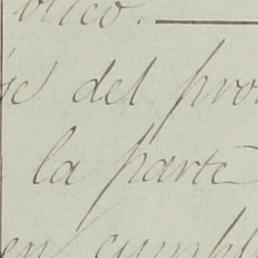 blico.
se del pro
la parte
en cumpl